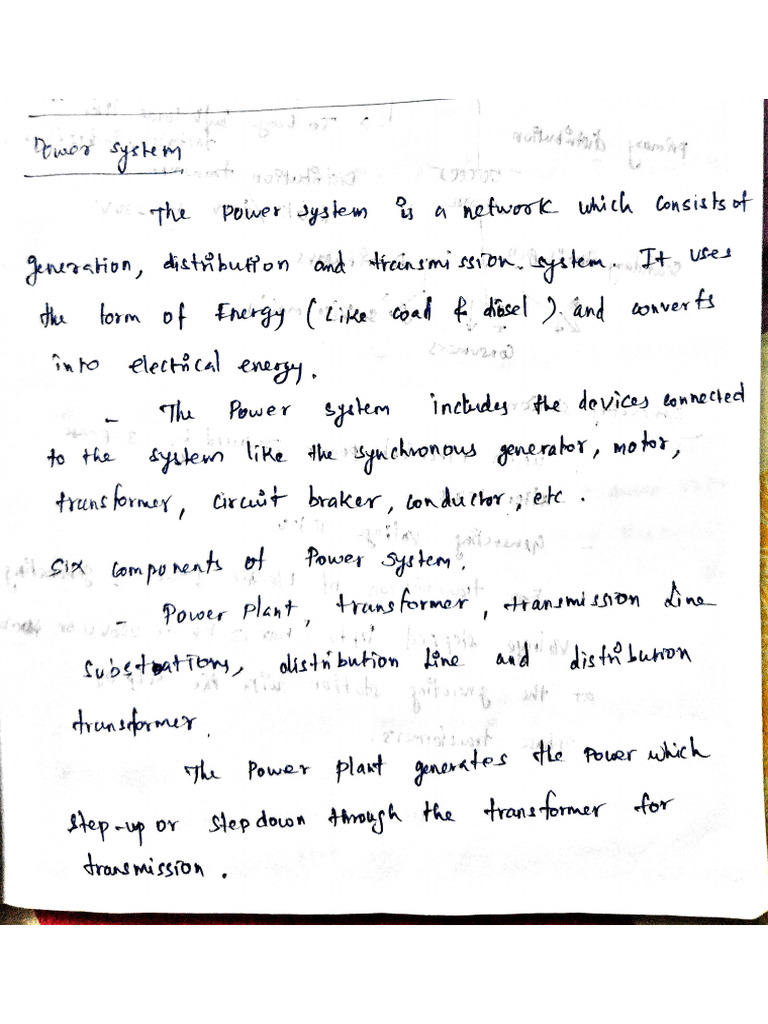 Power system
The power system is a network which consists of
generation, distribution and transmission system. It uses
the form of Energy (Like coad & diesel) and converts
into electrical energy.
- The Power system includes the devices connected
to the system like the synchronous generator, motor,
transformer, circuit braker, conductor, etc.
Six components of Power System.
- Power Plant, transformer, transmission Line
substations, distribution Line and distribution
transformer.
The Power plant generates the Power which
step-up or step down through the transformer for
transmission.